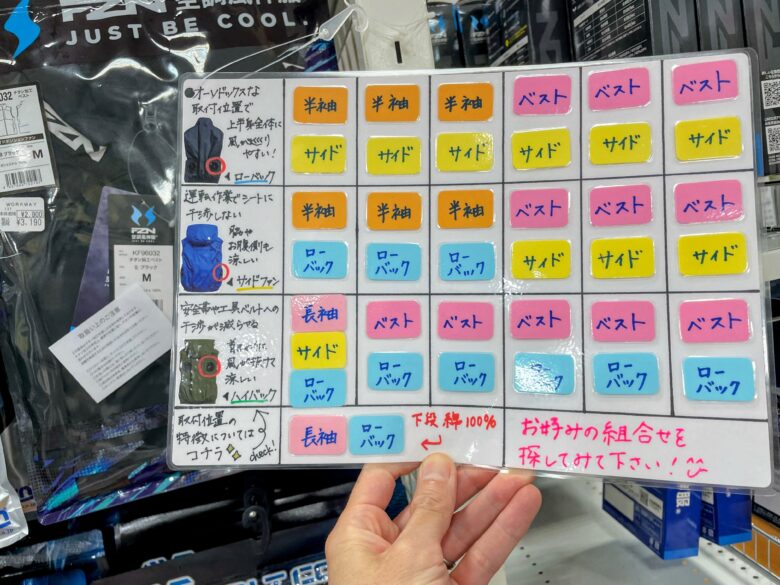 JUST BE COOL.
M
WORKWAY
¥2,900
¥3,190
FZN
KF96032
チタン加工ベスト
8:ブラック
M
取扱い上のご注意
●オーソドックスな
取付位置で
上半身全体に
風がめぐり
やすい!
◀ローバック
半袖 半袖 半袖 ベスト ベスト ベスト
サイド サイド サイド サイド サイド サイド
運転作業でシートに
干渉しない
脇や
お腹側も
涼しい
◀サイドファン
半袖 半袖 半袖 ベスト ベスト ベスト
ローバック ローバック ローバック サイド サイド サイド
安全帯や工具ベルトへの
干渉が減らせる
首まわりに
風が抜けて
涼しい
◀ハイバック
長袖 ベスト ベスト ベスト ベスト ベスト
サイド
ローバック ローバック ローバック ローバック ローバック ローバック
取付位置の
特徴については
コチラ
check!
長袖 ローバック
下段 綿100%
お好みの組合せを
探してみて下さい!